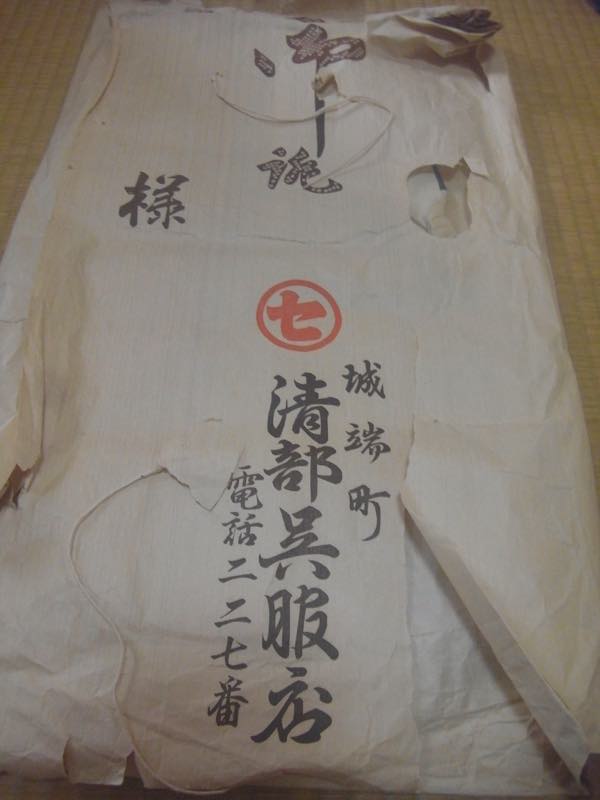 御誂
様
セ
城端町
清部呉服店
電話二二七番